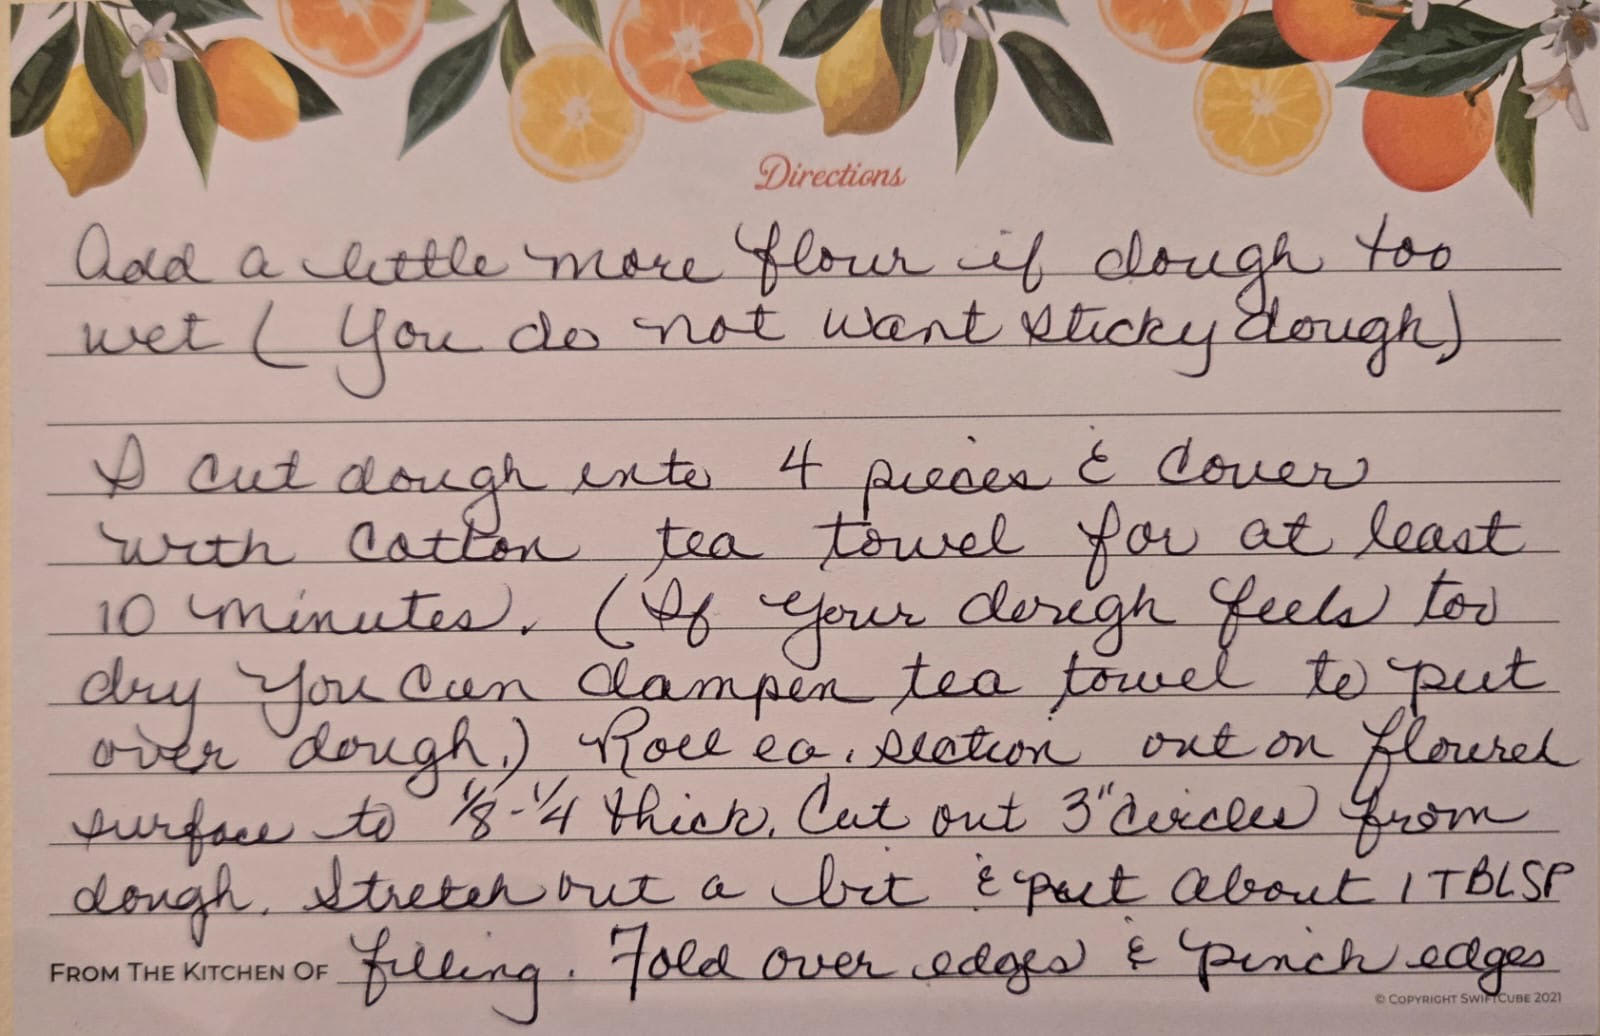 Directions
Add a little more flour if dough too
wet ( You do not want sticky dough)
I cut dough into 4 pieces & cover
with cotton tea towel for at least
10 minutes. (If your dough feels too
dry you can dampen tea towel to put
over dough.) Roll ea. section out on floured
surface to 1/8-1/4 thick. Cut out 3" circles from
dough. Stretch out a bit & put about 1 TBLSP
FROM THE KITCHEN OF filling. Fold over edges & pinch edges
© COPYRIGHT SWIFTCUBE 2021